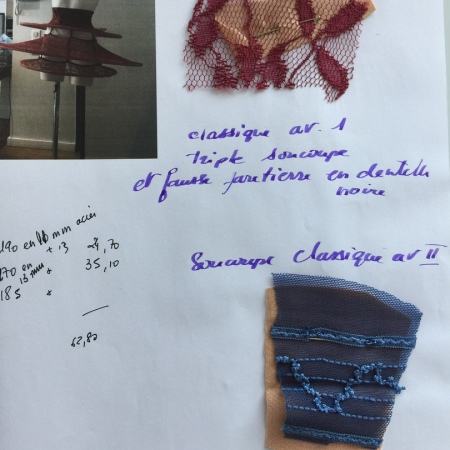 classique av. 1
triple soucoupe
et fausse jaretierre en dentelle
noire
190 en 10 mm acier
+ .3 24,70
170 en
13 mm + 35,10
185 +
62,80
Soucoupe classique av II